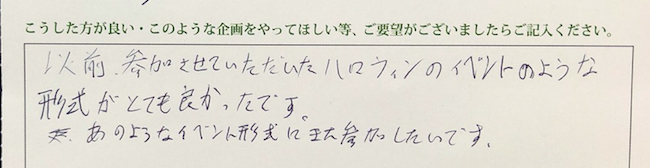 こうした方が良い・このような企画をやってほしい等、ご要望がございましたらご記入ください。
以前、参加させていただいたハロウィンのイベントのような
形式がとても良かったです。
あのようなイベント形式にまた参加したいです。